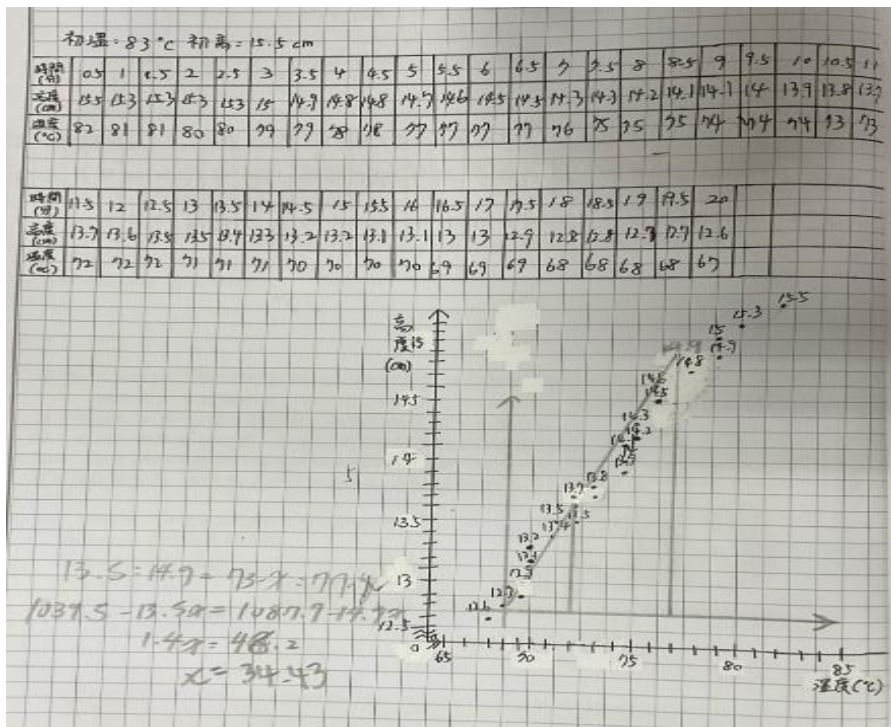 初溫=83°C 初高=15.5cm
時間(分) 0.5 1 1.5 2 2.5 3 3.5 4 4.5 5 5.5 6 6.5 7 7.5 8 8.5 9 9.5 10 10.5 11
高度(cm) 15.5 15.3 15.3 15.3 15.3 15 14.9 14.8 14.8 14.7 14.6 14.5 14.5 14.3 14.3 14.2 14.1 14.1 14 13.9 13.8 13.7
溫度(°C) 82 81 81 80 80 79 79 78 78 77 77 77 77 76 75 75 75 74 74 74 73 73
時間(分) 11.5 12 12.5 13 13.5 14 14.5 15 15.5 16 16.5 17 17.5 18 18.5 19 19.5 20
高度(cm) 13.7 13.6 13.5 13.5 13.4 13.3 13.2 13.2 13.1 13.1 13 13 12.9 12.8 12.8 12.7 12.7 12.6
溫度(°C) 72 72 72 71 71 71 70 70 70 70 69 69 69 68 68 68 68 67
高度(cm)
15.5
15.3
15
15
14.9
14.8
14.6
14.5
14.5
14.3
14.2
14
13.8
13.7
13.5
13.5
13.5
13.4
13.2
13
12.7
12.6
12.5
0
65 70 75 80 85
溫度(°C)
5
13.5:14.9=73-x:77-x
1039.5-13.5x=1087.7-14.9x
1.4x=48.2
x=34.43